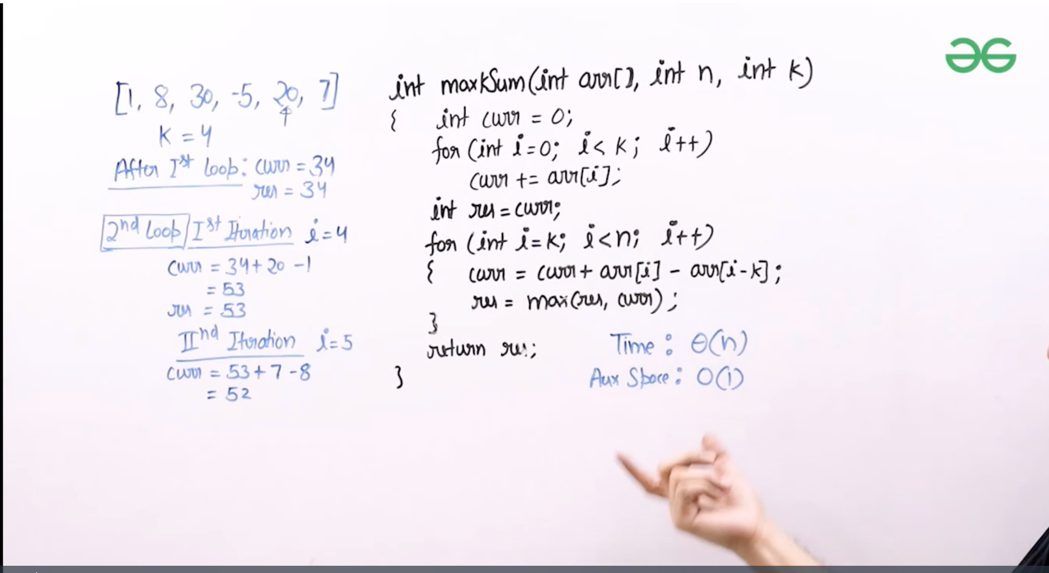 [1, 8, 30, -5, 20, 7]
↑
K = 4
After Ist loop: curr = 34
res = 34
2nd Loop Ist Iteration i=4
curr = 34+20 -1
= 53
res = 53
IInd Iteration i=5
curr = 53+7-8
= 52
int maxkSum(int arr[], int n, int k)
{ int curr = 0;
for (int i=0; i< k; i++)
curr += arr[i];
int res = curr;
for (int i=k; i<n; i++)
{ curr = curr + arr[i] - arr[i-k];
res = max(res, curr);
}
return res;
}
Time: θ(n)
Aux Space: O(1)